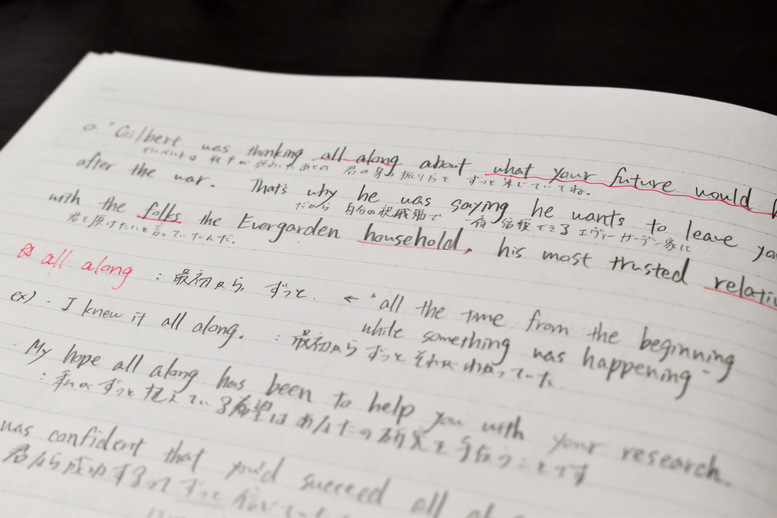 ○ "Gilbert was thinking all along about what your future would
ずっと案じていてね。
after the war. That's why he was saying he wants to leave you
だから 自分の親戚筋で 一番信頼できるエヴァーガーデン家に
with the folks the Evergarden household, his most trusted relativ
君を預けたいと言っていたんだ。
all along : 最初から ずっと ← "all the time from the beginning
while something was happening"
ex) · I knew it all along. : 最初からずっとそれがわかっていた
· My hope all along has been to help you with your research.
: 私がずっと抱えている希望はあなたの研究を手伝うことです
was confident that you'd succeed all
君なら成功するってずっと